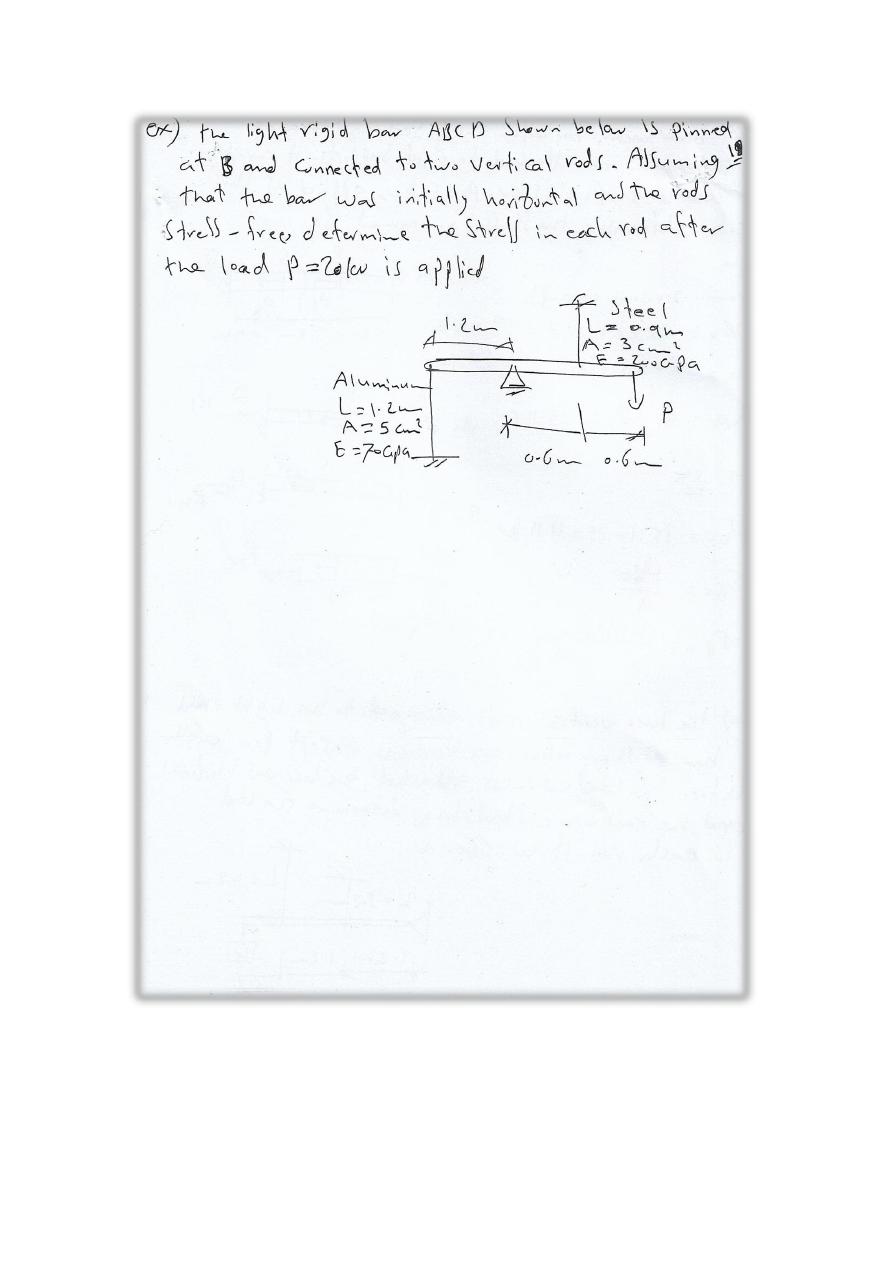 ex) the light rigid bar ABCD shown below is pinned
at B and connected to two vertical rods. Assuming
19
that the bar was initially horizontal and the rods
stress-free, determine the stress in each rod after
the load P=20kN is applied
Steel
L = 0.9m
A = 3cm²
E = 200GPa
1.2m
Aluminum
L=1.2m
A=5cm²
E=70Gpa
P
0.6m 0.6m